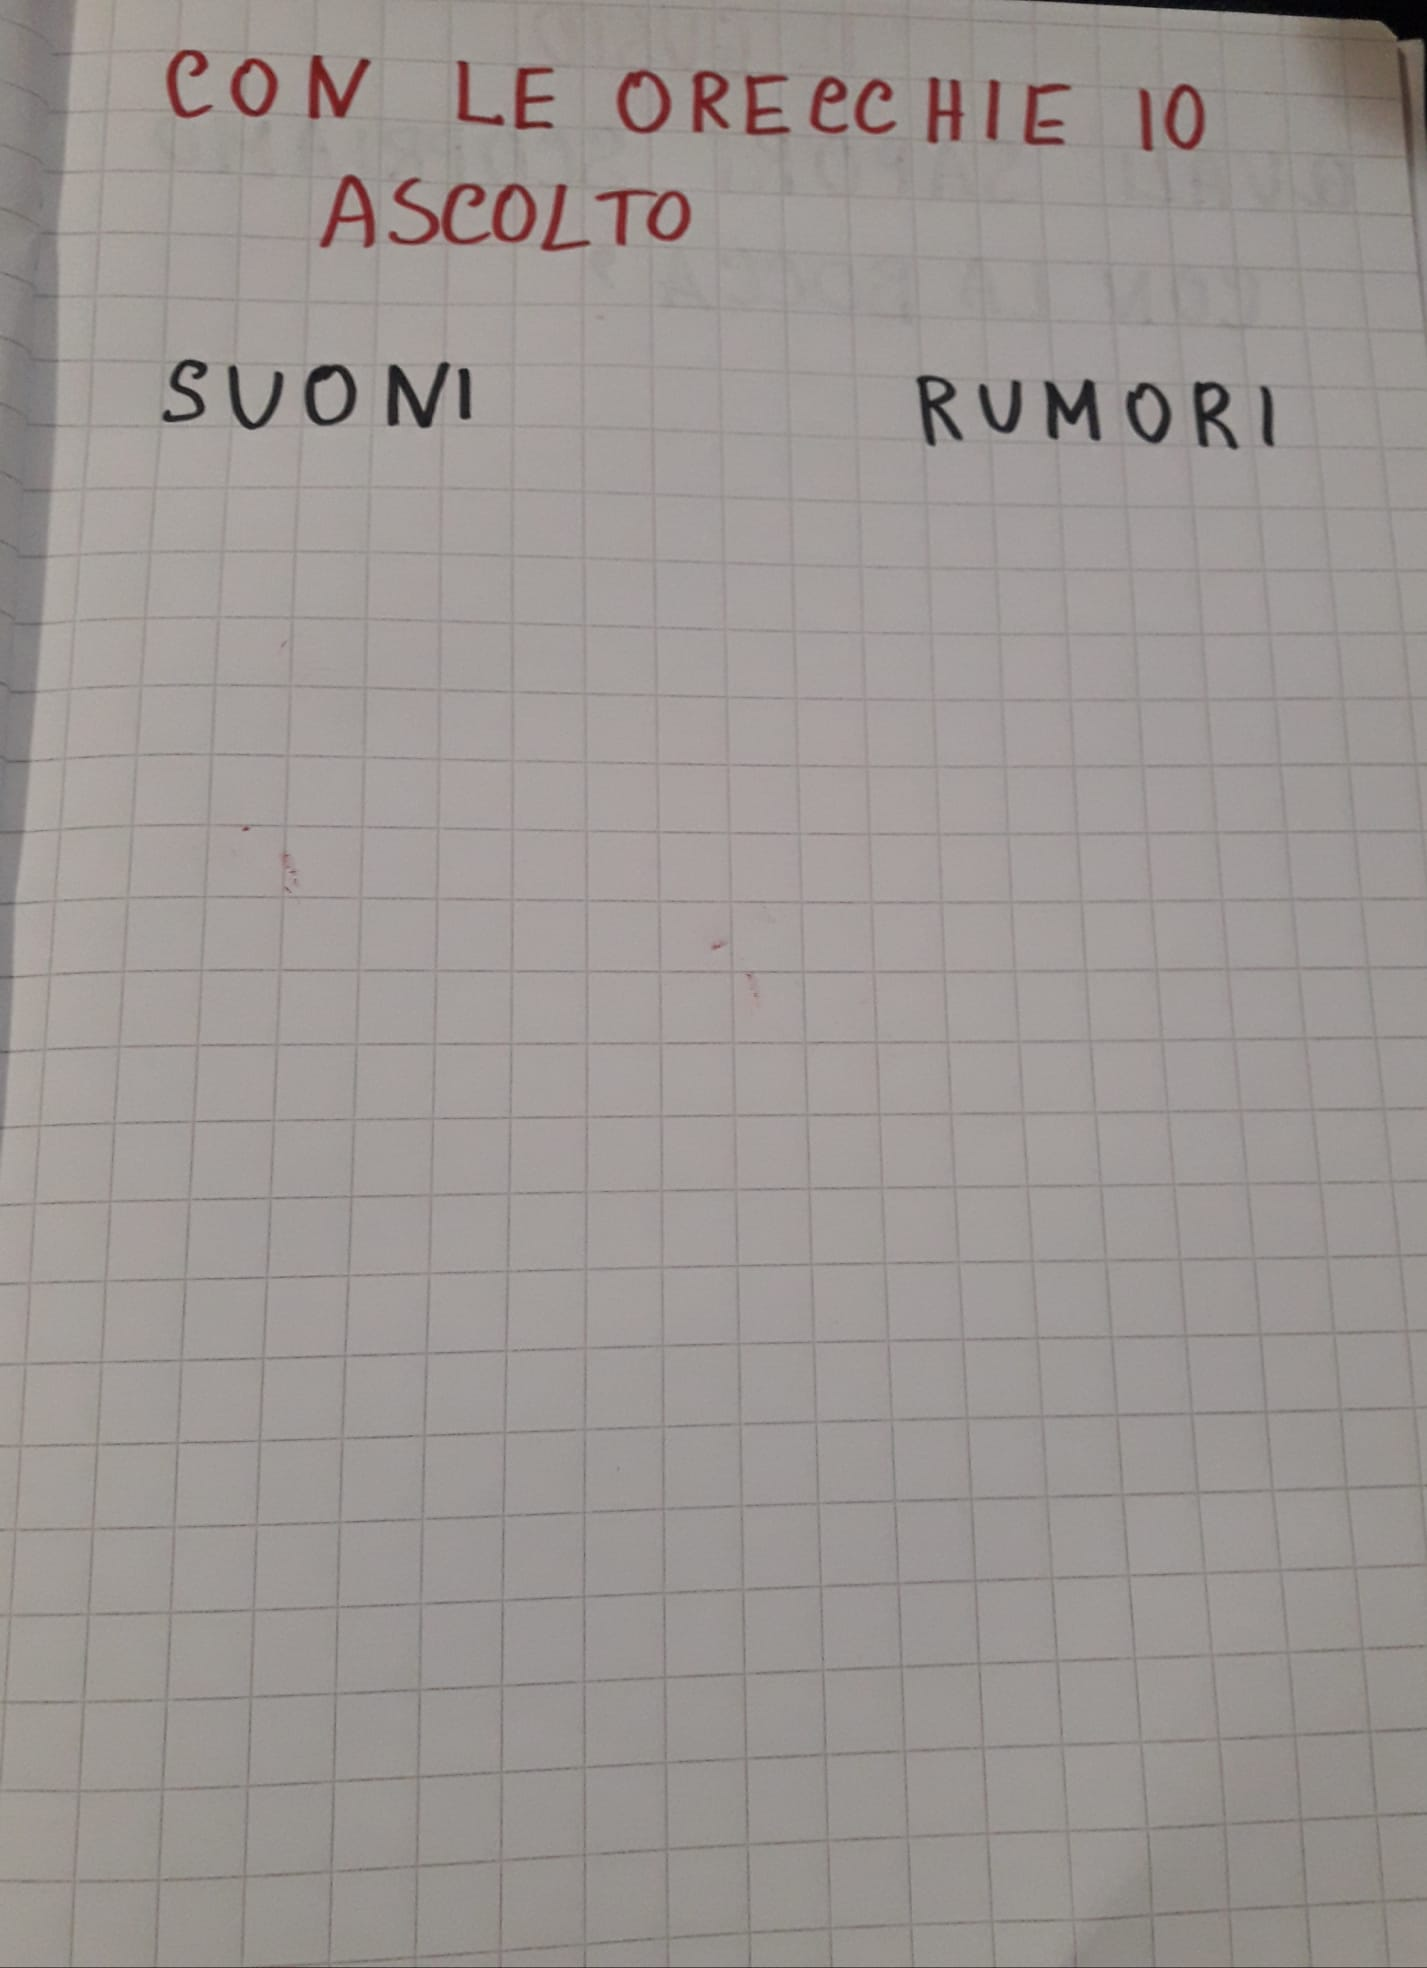 CON LE ORECCHIE IO
ASCOLTO
SUONI RUMORI